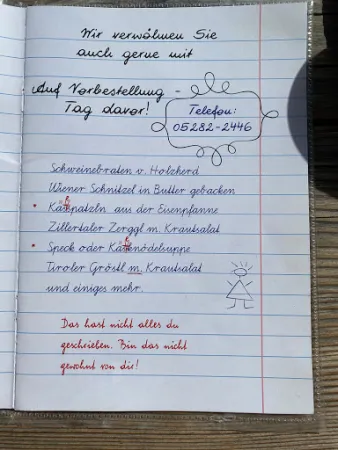 Wir verwöhnen Sie
auch gerne mit
Auf Vorbestellung -
Tag davor!
Telefon:
05282-2446
Schweinebraten v. Holzherd
Wiener Schnitzel in Butter gebacken
Käspatzln aus der Eisenpfanne
Zillertaler Zerggl m. Krautsalat
Speck oder Käsknödelsuppe
Tiroler Gröstl m. Krautsalat
und einiges mehr.
Das hast nicht alles du
geschrieben. Bin das nicht
gewohnt von dir!